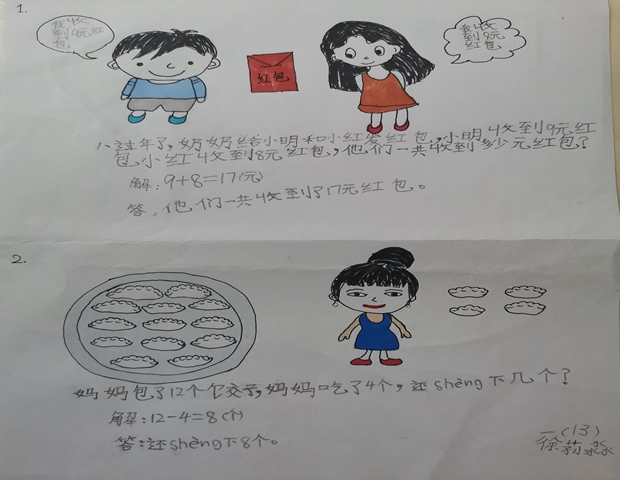 1.
我收
到9元红
包
红包
我收
到8元
红包
1、过年了，奶奶给小明和小红发红包，小明收到9元红
包，小红收到8元红包，他们一共收到多少元红包？
解：9+8=17(元)
答：他们一共收到了17元红包。
2.
妈妈包了12个饺子，妈妈吃了4个，还shèng下几个？
解：12-4=8(个)
答：还shèng下8个。
一(13)
徐莉淼